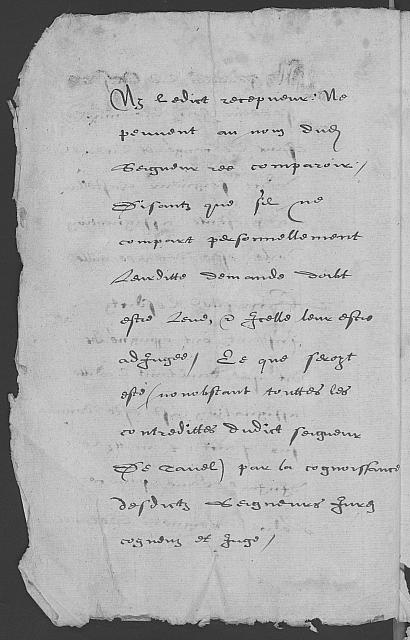 Ny ledict recepveur: Ne
peuvent au nom dud
Seigneur roc comparoir /
Disantz que sil ne
compart personnellement
Leurditte demande doibt
estre Leue, & Jcelle leur estre
adJugee / Ce que seroyt
esté (nonobstant touttes les
contredittes dudict seigneur
De Tavel) par la cognoissance
desdictz Seigneurs Jurez
cogneuz et Juge /